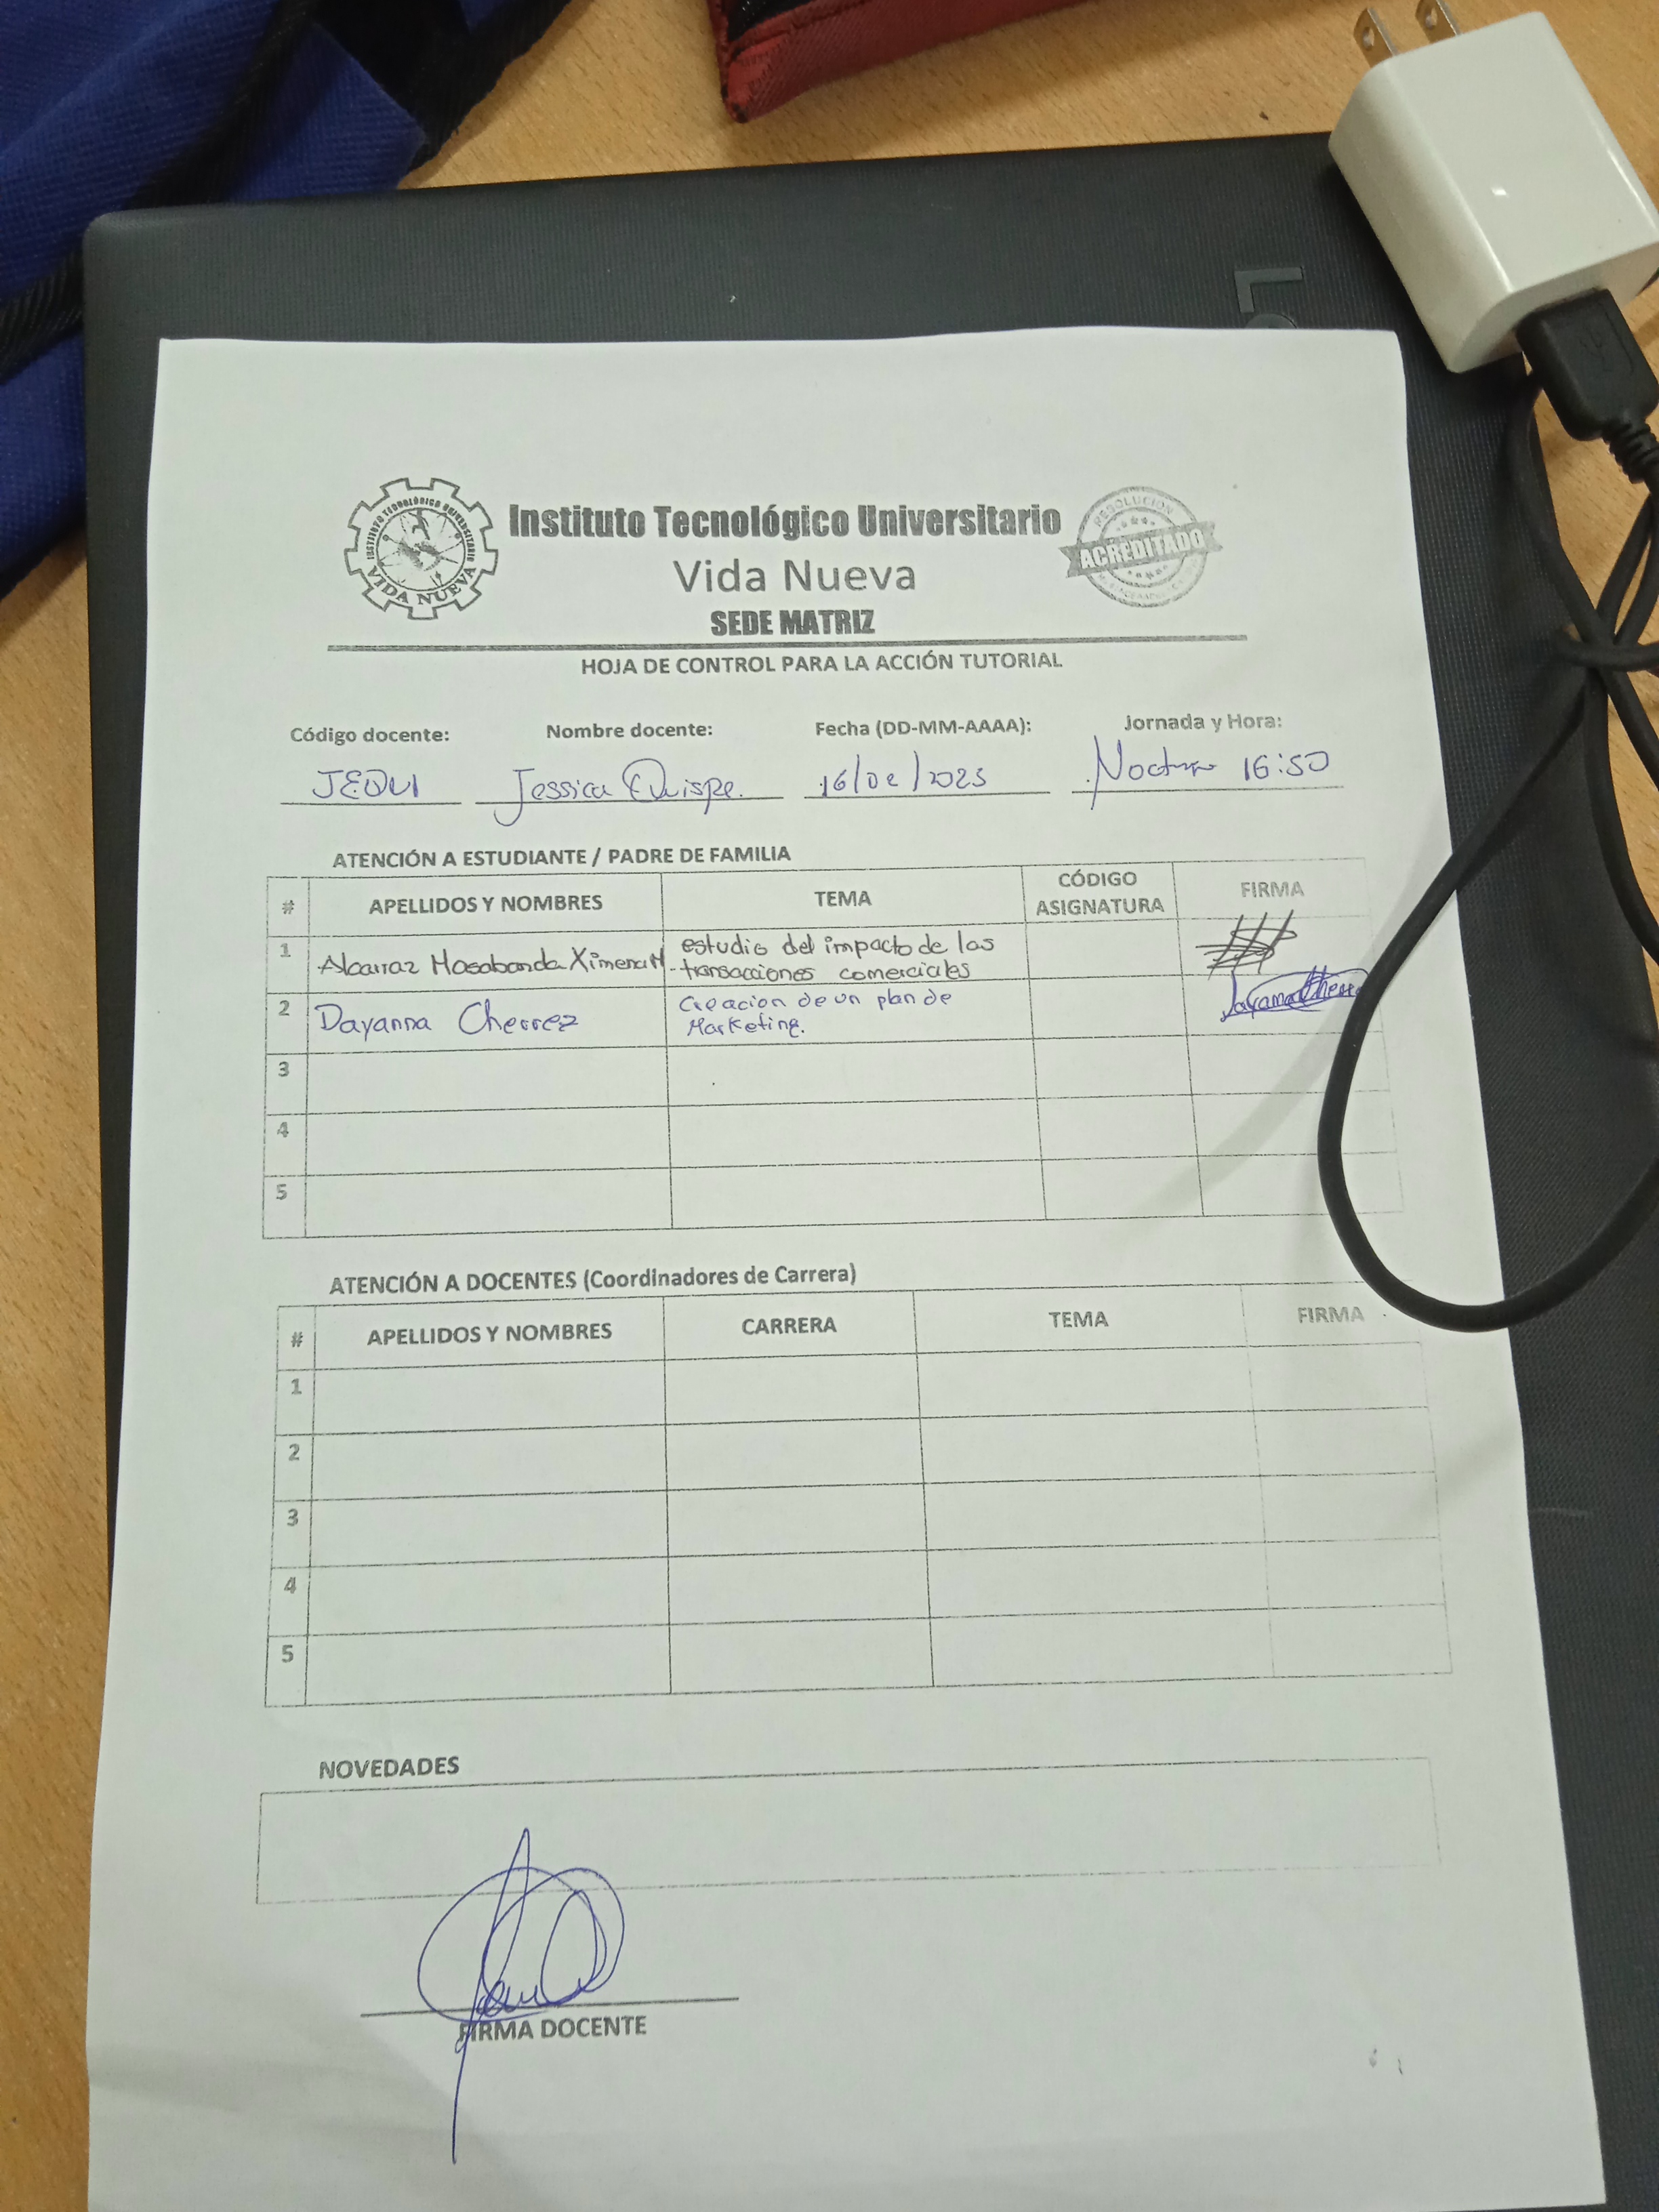 Instituto Tecnológico Universitario
Vida Nueva
SEDE MATRIZ
INSTITUTO TECNOLÓGICO UNIVERSITARIO
VIDA NUEVA
RESOLUCIÓN
ACREDITADO
HOJA DE CONTROL PARA LA ACCIÓN TUTORIAL
Código docente: Nombre docente: Fecha (DD-MM-AAAA): Jornada y Hora:
JEQUI Jessica Quispe. 2023 16:50
ATENCIÓN A ESTUDIANTE / PADRE DE FAMILIA
# APELLIDOS Y NOMBRES TEMA CÓDIGO ASIGNATURA FIRMA
1 Alcarraz Masabanda Ximena M. estudio del impacto de las
transacciones comerciales
2 Dayanna Cherrez Creacion de un plan de
Marketing.
3
4
5
ATENCIÓN A DOCENTES (Coordinadores de Carrera)
# APELLIDOS Y NOMBRES CARRERA TEMA FIRMA
1
2
3
4
5
NOVEDADES
FIRMA DOCENTE